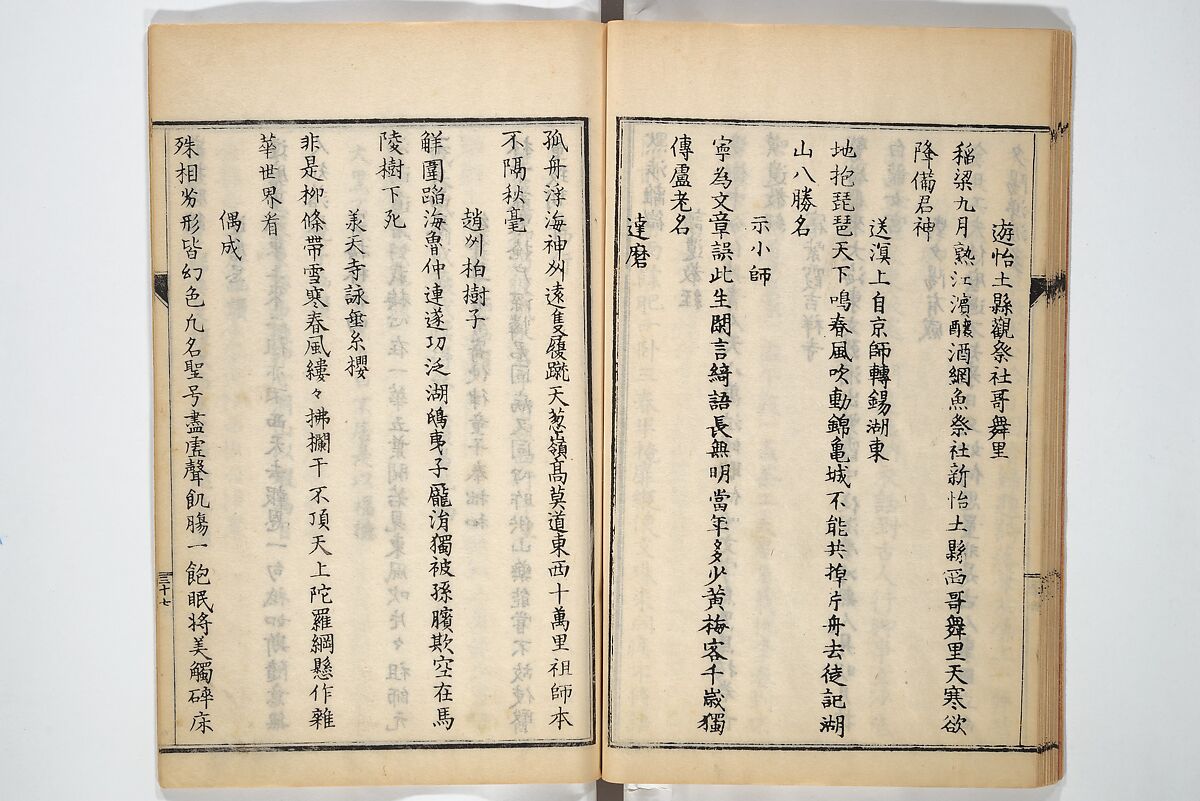 遊怡土縣觀祭社哥舞里
稻粱九月熟江濱釀酒網魚祭社新怡土縣西哥舞里天寒欲
降備君神
送溟上自京師轉錫湖東
地抱琵琶天下鳴春風吹動錦亀城不能共掉片舟去徒記湖
山八勝名
示小師
寧為文章誤此生閑言綺語長無明當年多少黄梅客千歳獨
傳盧老名
達磨
孤舟浮海神州遠隻履蹴天葱嶺髙莫道東西十萬里祖師本
不隔秋毫
趙州柏樹子
解圍蹈海魯仲連遂功泛湖鴟夷子龎涓獨被孫臏欺空在馬
陵樹下死
義天寺詠垂糸櫻
非是柳條帶雪寒春風縷々拂欄干不頂天上陀羅綱懸作雜
華世界看
偶成
殊相劣形皆幻色凡名聖号盡虚聲飢膓一飽眠将美觸碎床
三十七